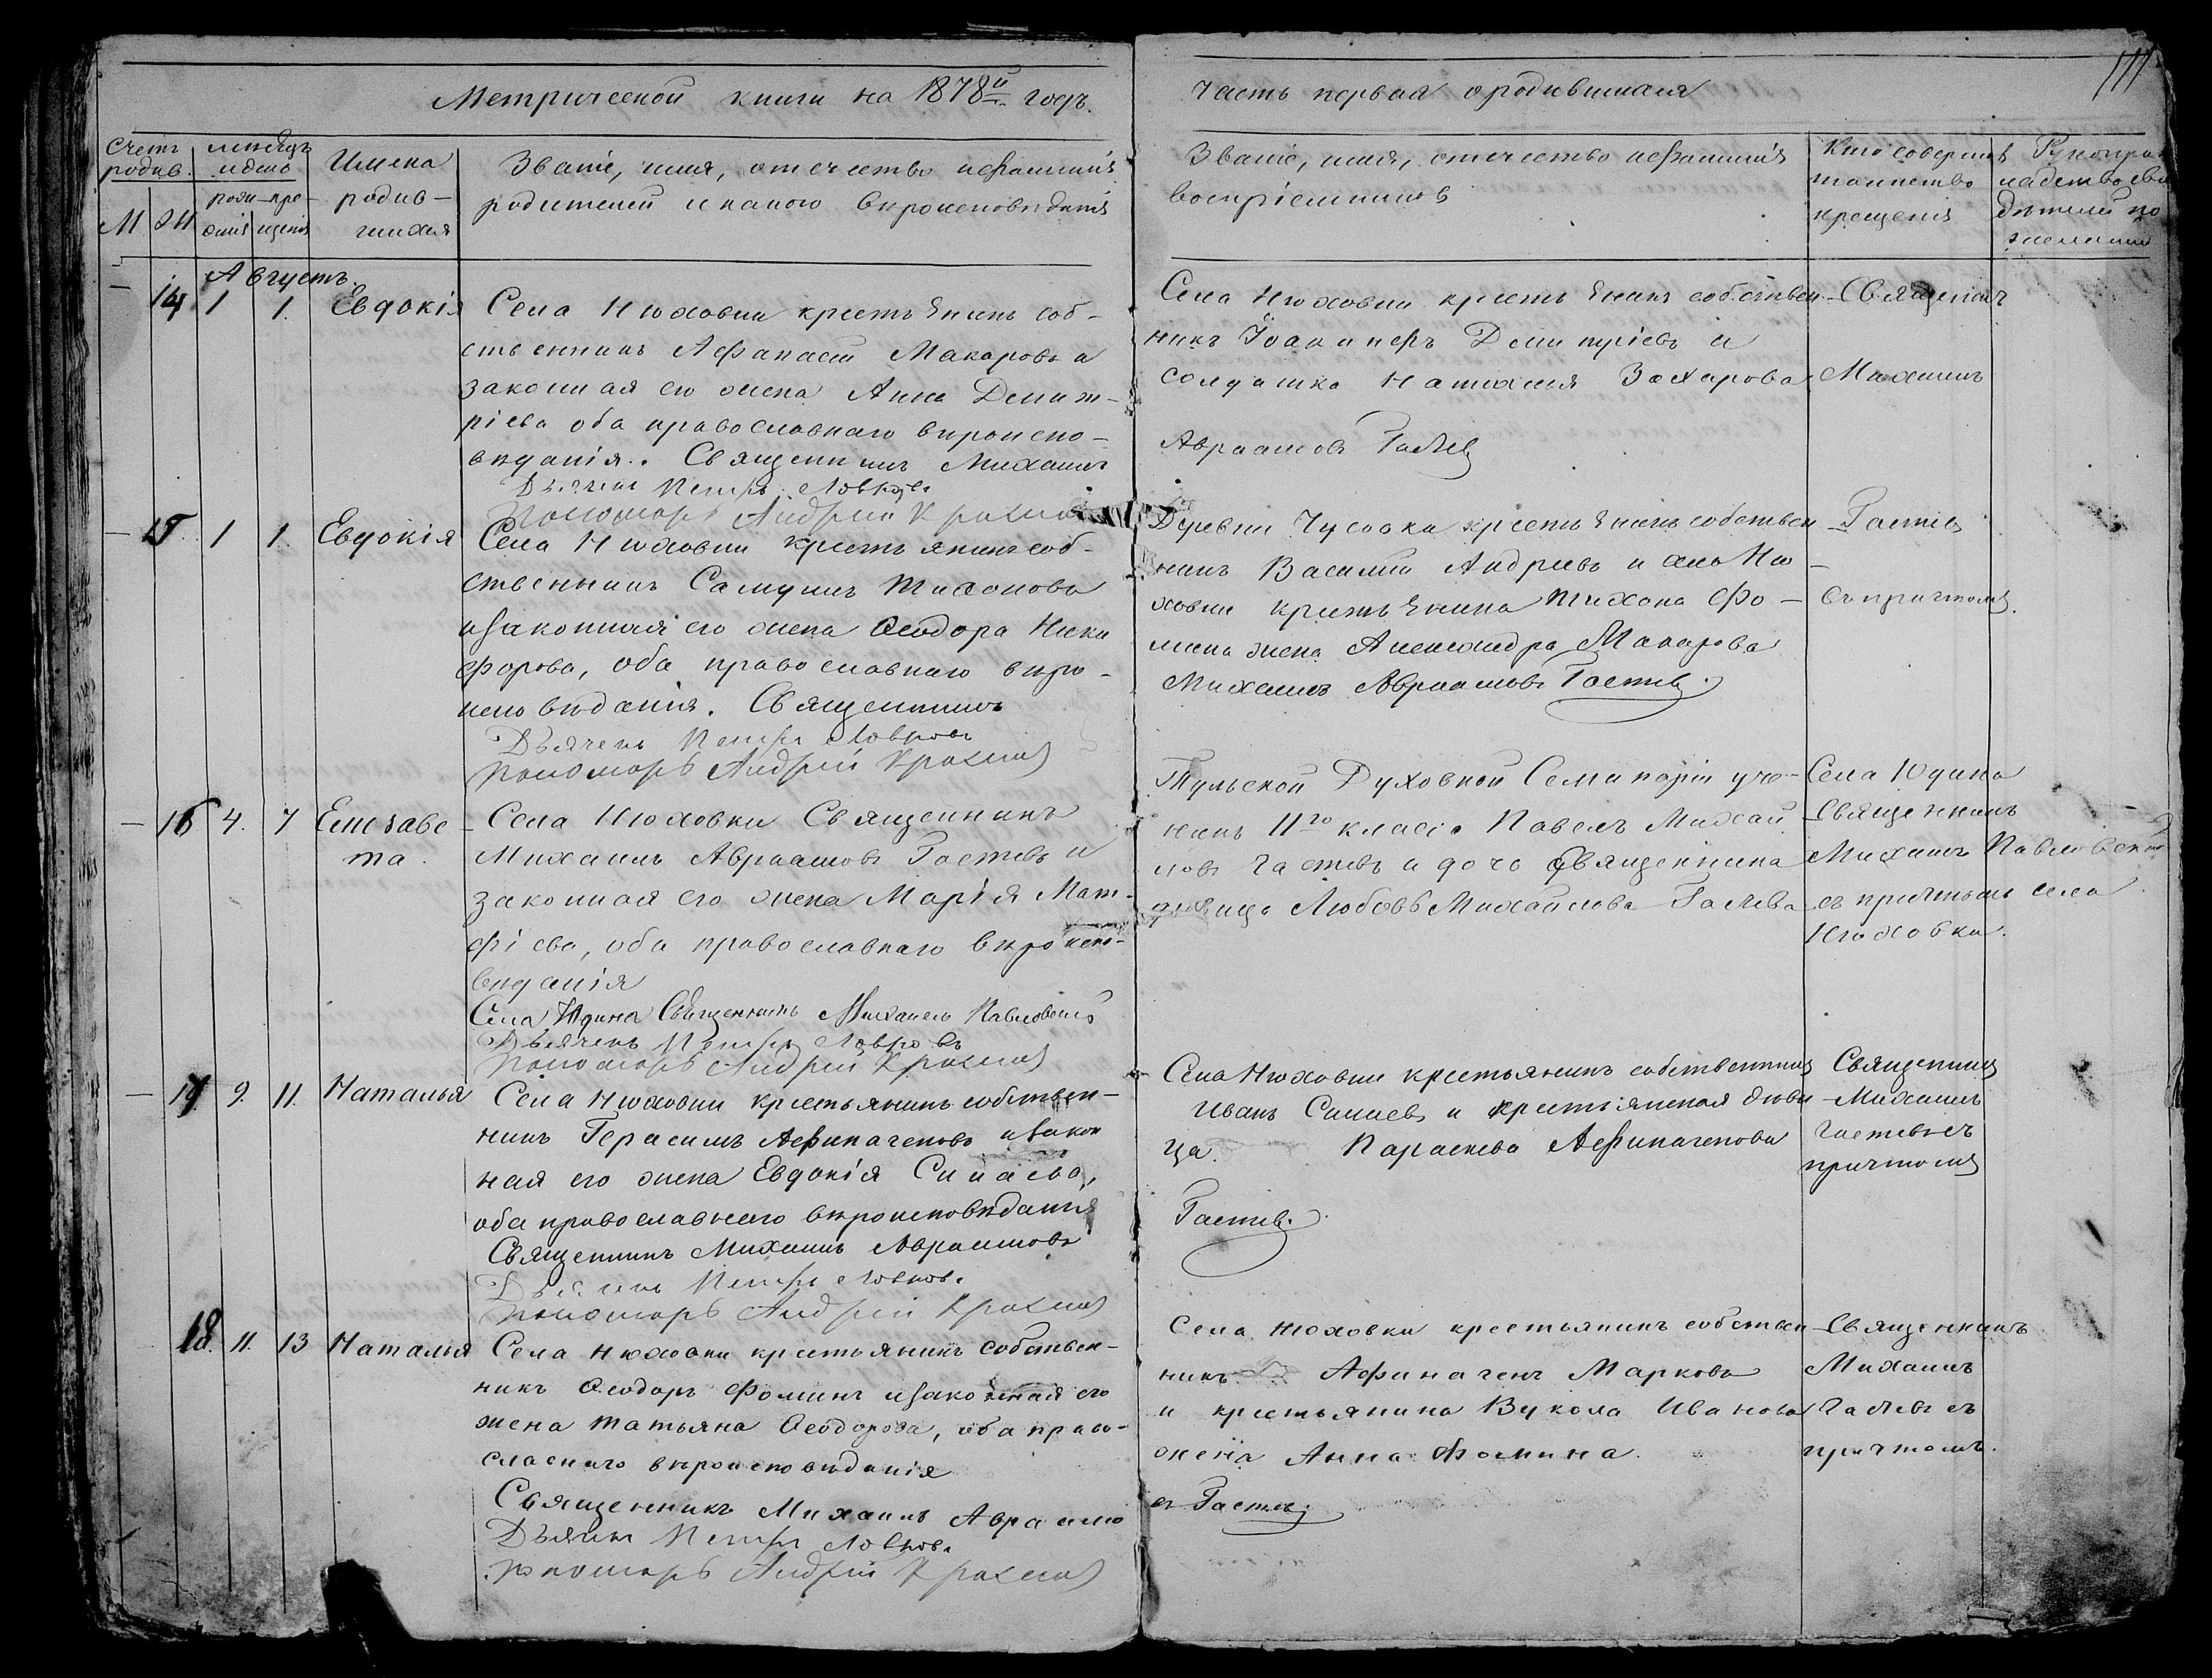 Метрической книги на 1878й годъ.
Часть первая о родившихся
111
Счетъ родив.
М
Ж
мѣсяцъ и день
рожденія
крещенія
Имена родив-
шихся
Званіе, имя, отчество и фамилія
родителей и какого вѣроисповѣданія
Званіе, имя, отчество и фамилія
воспріемниковъ
Кто совершалъ
таинство
крещенія
Рукопри
кладство сви
дѣтелей по
желанію
Августъ
14
1
1.
Евдокія
Села Нюховки крестьянинъ соб-
ственникъ Афанасій Макаровъ и
законная его жена Анна Димит-
ріева оба православнаго вѣроиспо-
вѣданія. Священникъ Михаилъ
Дьячекъ Петръ Лавровъ
Пономарь Андрей
Села Нюховки крестьянинъ собствен
никъ Іоаникій Димитріевъ и
солдатка Наталія Захарова
Авраамовъ Гастев
Священникъ
Михаилъ
15.
1
1.
Евдокія
Села Нюховки крестьянинъ соб-
ственникъ Самуилъ Тихоновъ
и законная его жена Ѳеодора Ники
форова, оба православнаго вѣро-
исповѣданія. Священникъ
Дьячекъ Петръ Лавровъ
Пономарь Андрей
Деревни Чусовка крестьянинъ собствен
никъ Василій Андреевъ и села Ню-
ховки крестьянина Тихона Фо-
мина жена Александра Макарова
Михаилъ Авраамовъ Гастев.
Гастев
съ причтомъ.
16
4.
7
Елизаве-
та.
Села Нюховки Священникъ
Михаилъ Авраамовъ Гастевъ и
законная его жена Марія Мат-
фіева, оба православнаго вѣроиспо-
вѣданія
Села Юдина Священникъ Михаилъ Павловскій
Дьячекъ Петръ Лавровъ
Пономарь Андрей
Тульской Духовной Семинаріи уче-
никъ II го класса Павелъ Михай
ловъ Гастевъ и дочь Священника
дѣвица Любовь Михайлова Гастева
Села Юдина
Священникъ
Михаилъ Павловскій
съ причтомъ села
Нюховки.
17
9.
11.
Наталья
Села Нюховки крестьянинъ собствен-
никъ Герасимъ Афиногеновъ и закон
ная его жена Евдокія Силаева,
оба православнаго вѣроисповѣданія
Священникъ Михаилъ Авраамовъ
Дьячекъ Петръ Лавровъ
Пономарь Андрей
Села Нюховки крестьянинъ собственникъ
Иванъ Силаевъ и крестьянская дѣви
ца. Параскева Афиногенова
Гастев.
Священникъ
Михаилъ
Гастевъ съ
причтомъ
18.
11.
13
Наталья
Села Нюховки крестьянинъ собствен-
никъ Ѳеодоръ Фоминъ и законная его
жена Татьяна Ѳеодорова, оба право-
славнаго вѣроисповѣданія
Священникъ Михаилъ Авраамо
Дьячекъ Петръ Лавровъ
Пономарь Андрей
Села Нюховки крестьянинъ собствен
никъ Афиногенъ Марковъ
и крестьянина Вукола Иванова
жена Анна Фомина.
въ Гастевъ
Священникъ
Михаилъ
Гастевъ съ
причтомъ.